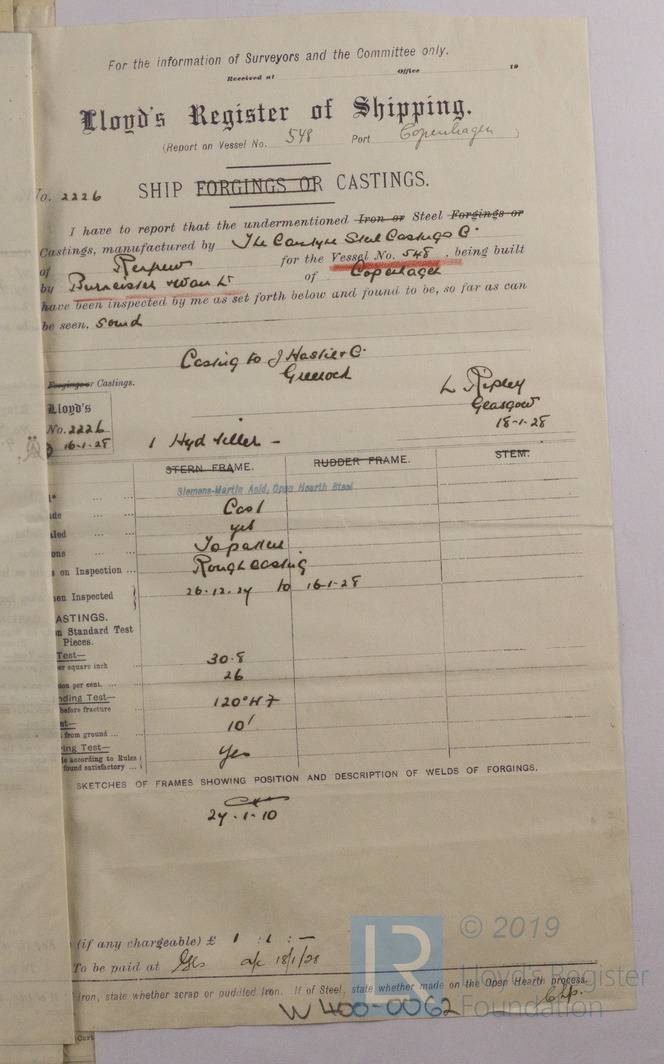 For the information of Surveyors and the Committee only.
Received at Office 19
Lloyd's Register of Shipping.
(Report on Vessel No. 548 Port Copenhagen )
No. 2226
SHIP FORGINGS OR CASTINGS.
I have to report that the undermentioned Iron or Steel Forgings or
Castings, manufactured by The Steel Castings C.
of for the Vessel No. 548, being built
by Burmeister & Wain Ld of Copenhagen
have been inspected by me as set forth below and found to be, so far as can
be seen, sound
Casting to J Hastie & C.
Greenock
Forgings or Castings.
L Ripley
Glasgow
18-1-28
Lloyd's
No. 2226
16-1-28
1 Hyd
STERN FRAME. RUDDER FRAME. STEM.
Siemens-Martin Acid, Open Hearth Steel
Cast
yes
Rough casting
s on Inspection ...
en Inspected 26.12.27 to 16-1-28
ASTINGS.
n Standard Test
Pieces.
Test—
er square inch 30.8
ion per cent. ... 26
ding Test—
before fracture 120°
st—
from ground ... 10'
ring Test—
le according to Rules
found satisfactory ... Yes
SKETCHES OF FRAMES SHOWING POSITION AND DESCRIPTION OF WELDS OF FORGINGS.
27.1.10
(if any chargeable) £ 1 : 1 : —
To be paid at Gls a/c 18/1/28
Iron, state whether scrap or puddled Iron. If of Steel, state whether made on the Open Hearth process.
W400-0062
© 2019
LR
Lloyd's Register
Foundation